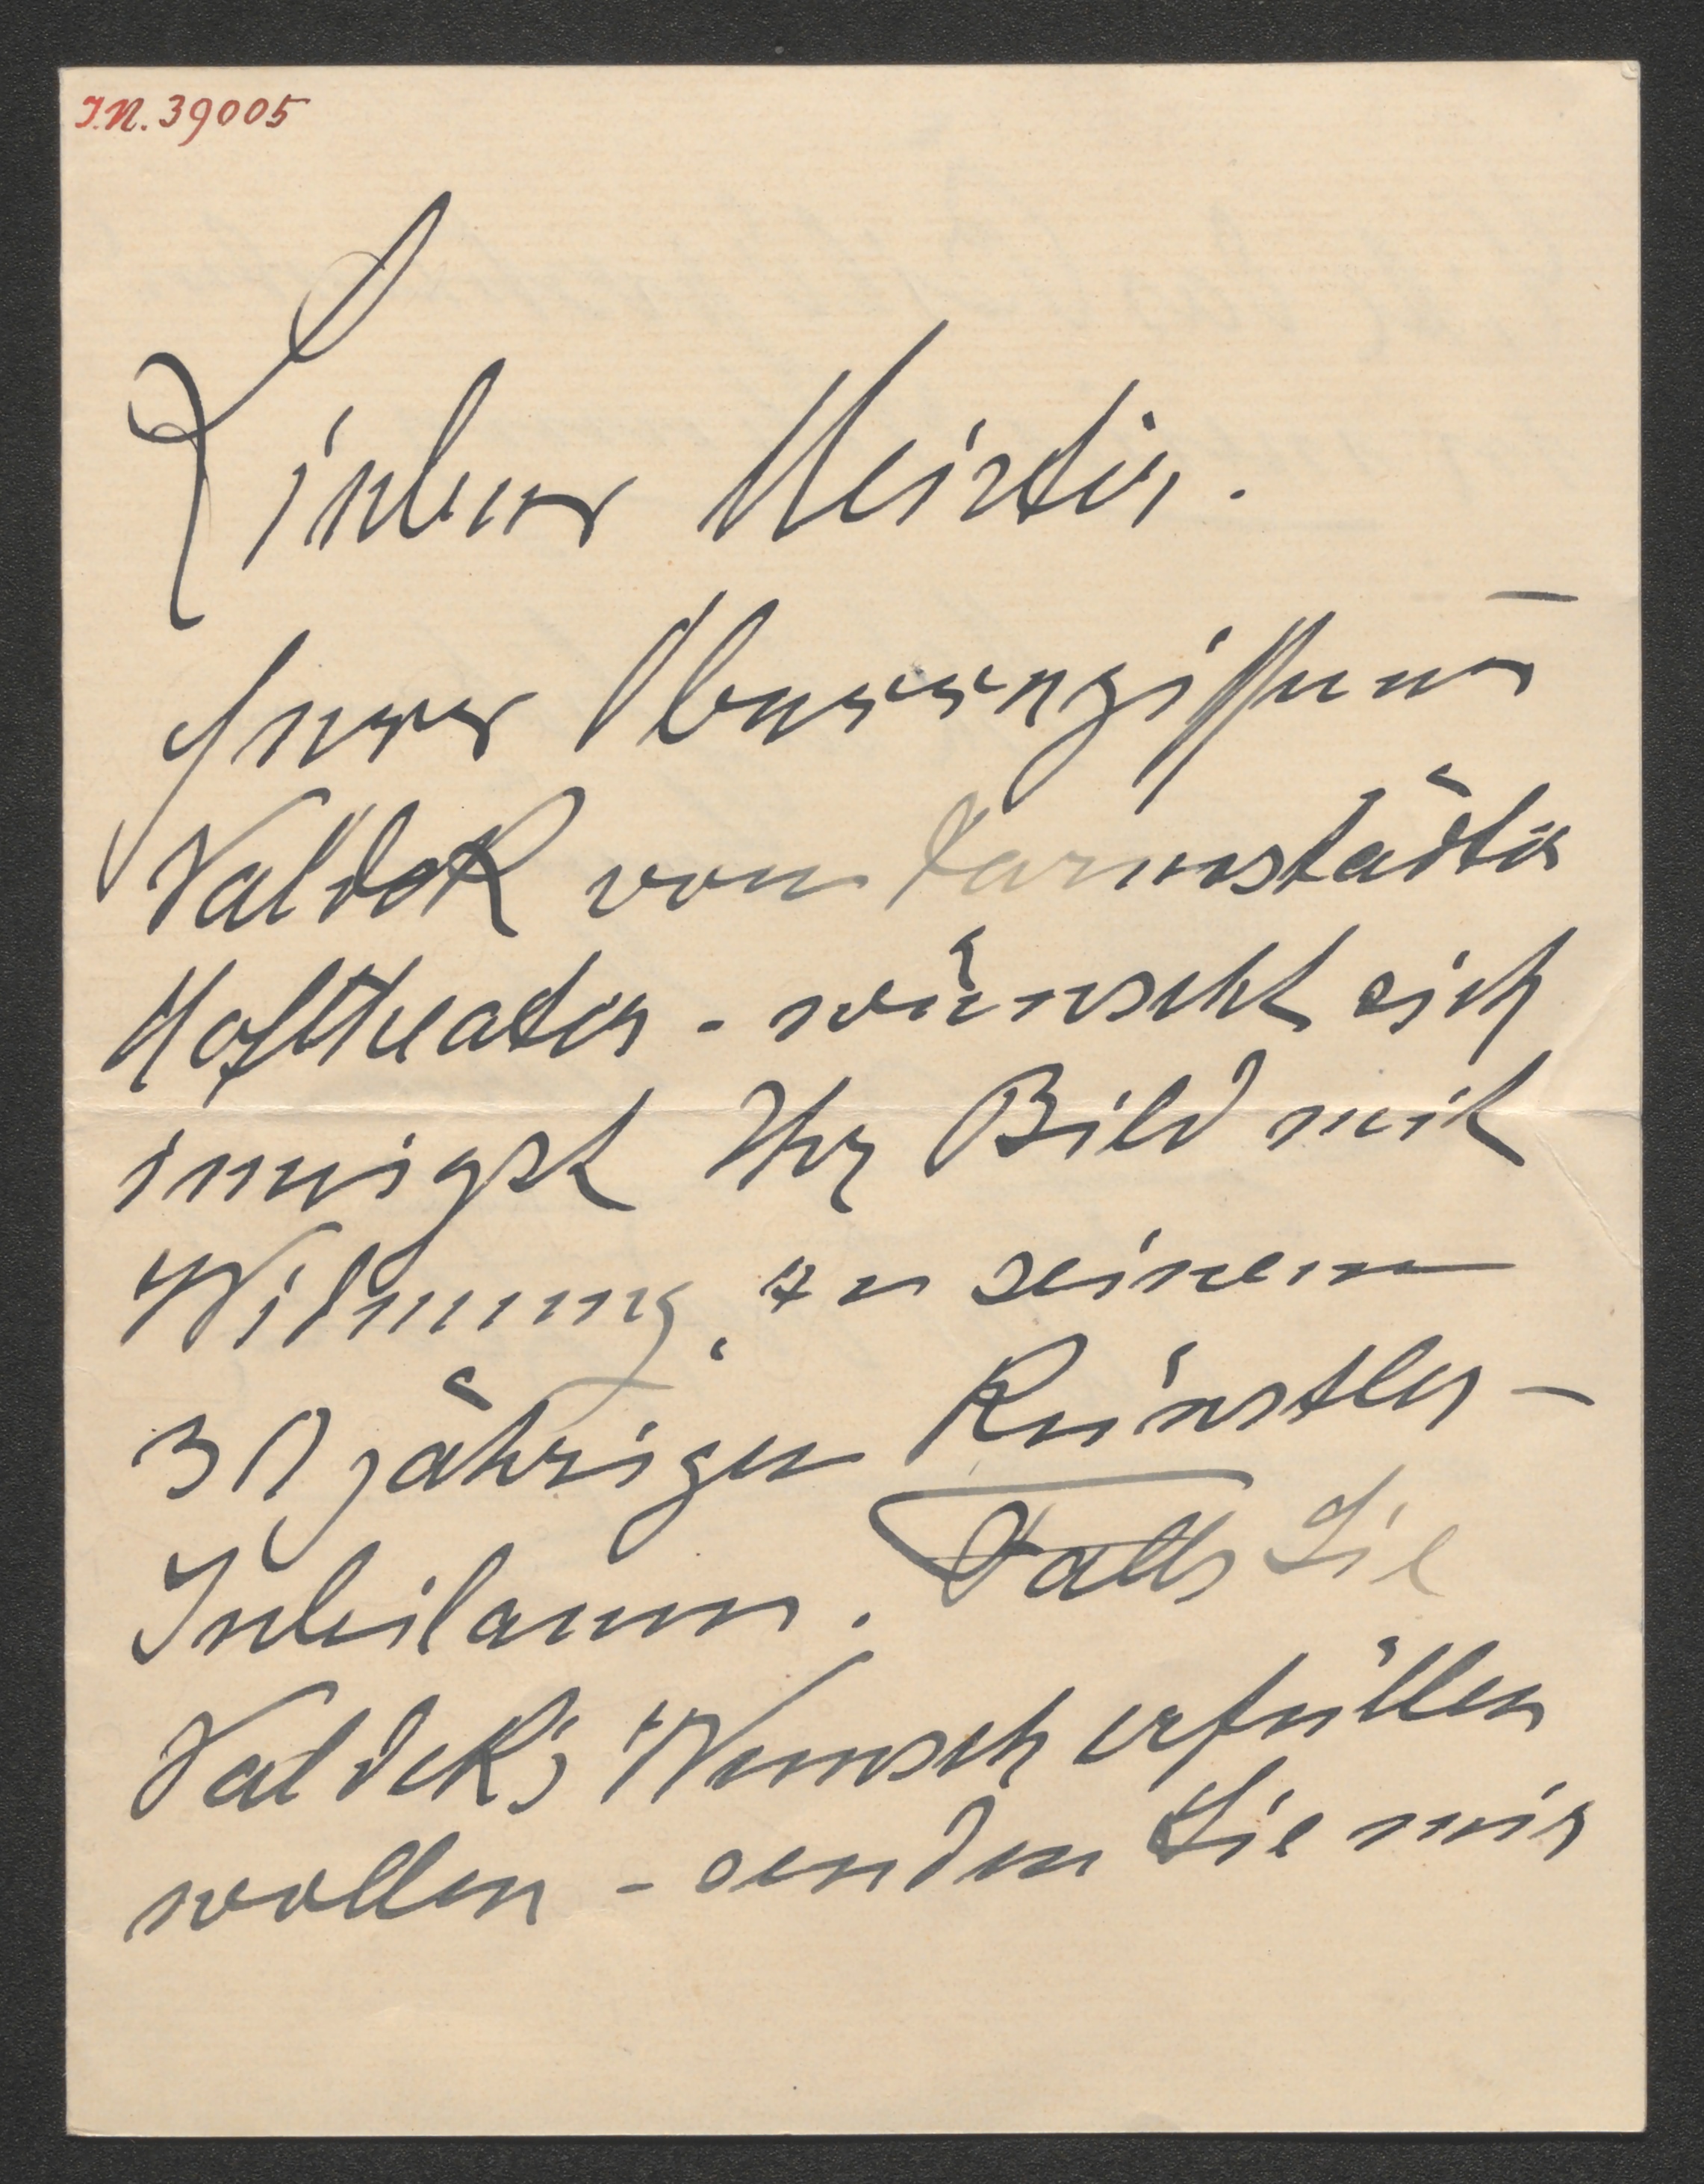 I.N. 39005
Lieber Meister.
Unser Oberregisseur
Valdek vom Darmstädter
Hoftheater - wünscht sich
innigst Ihr Bild mit
Widmung, zu seinem
30 jährigen Künstler-
Jubiläum. Falls Sie
Valdek's Wunsch erfüllen
wollen - senden Sie mir